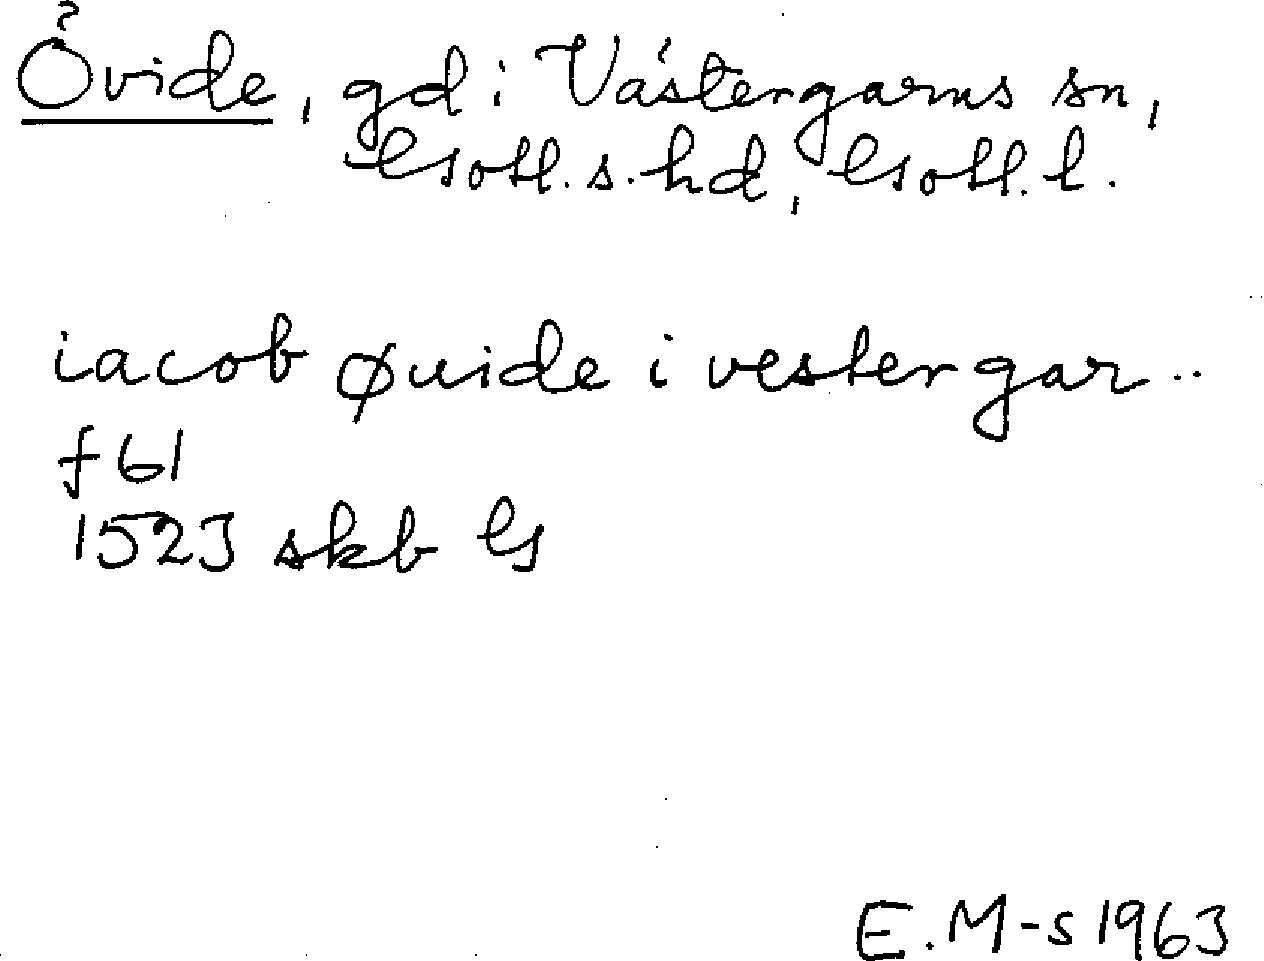 ?
Övide, gd i Västergarns sn,
Gotl. s. hd, Gotl. l.
iacob øuide i vestergar..
f 61
1523 skb G
E. M-s 1963